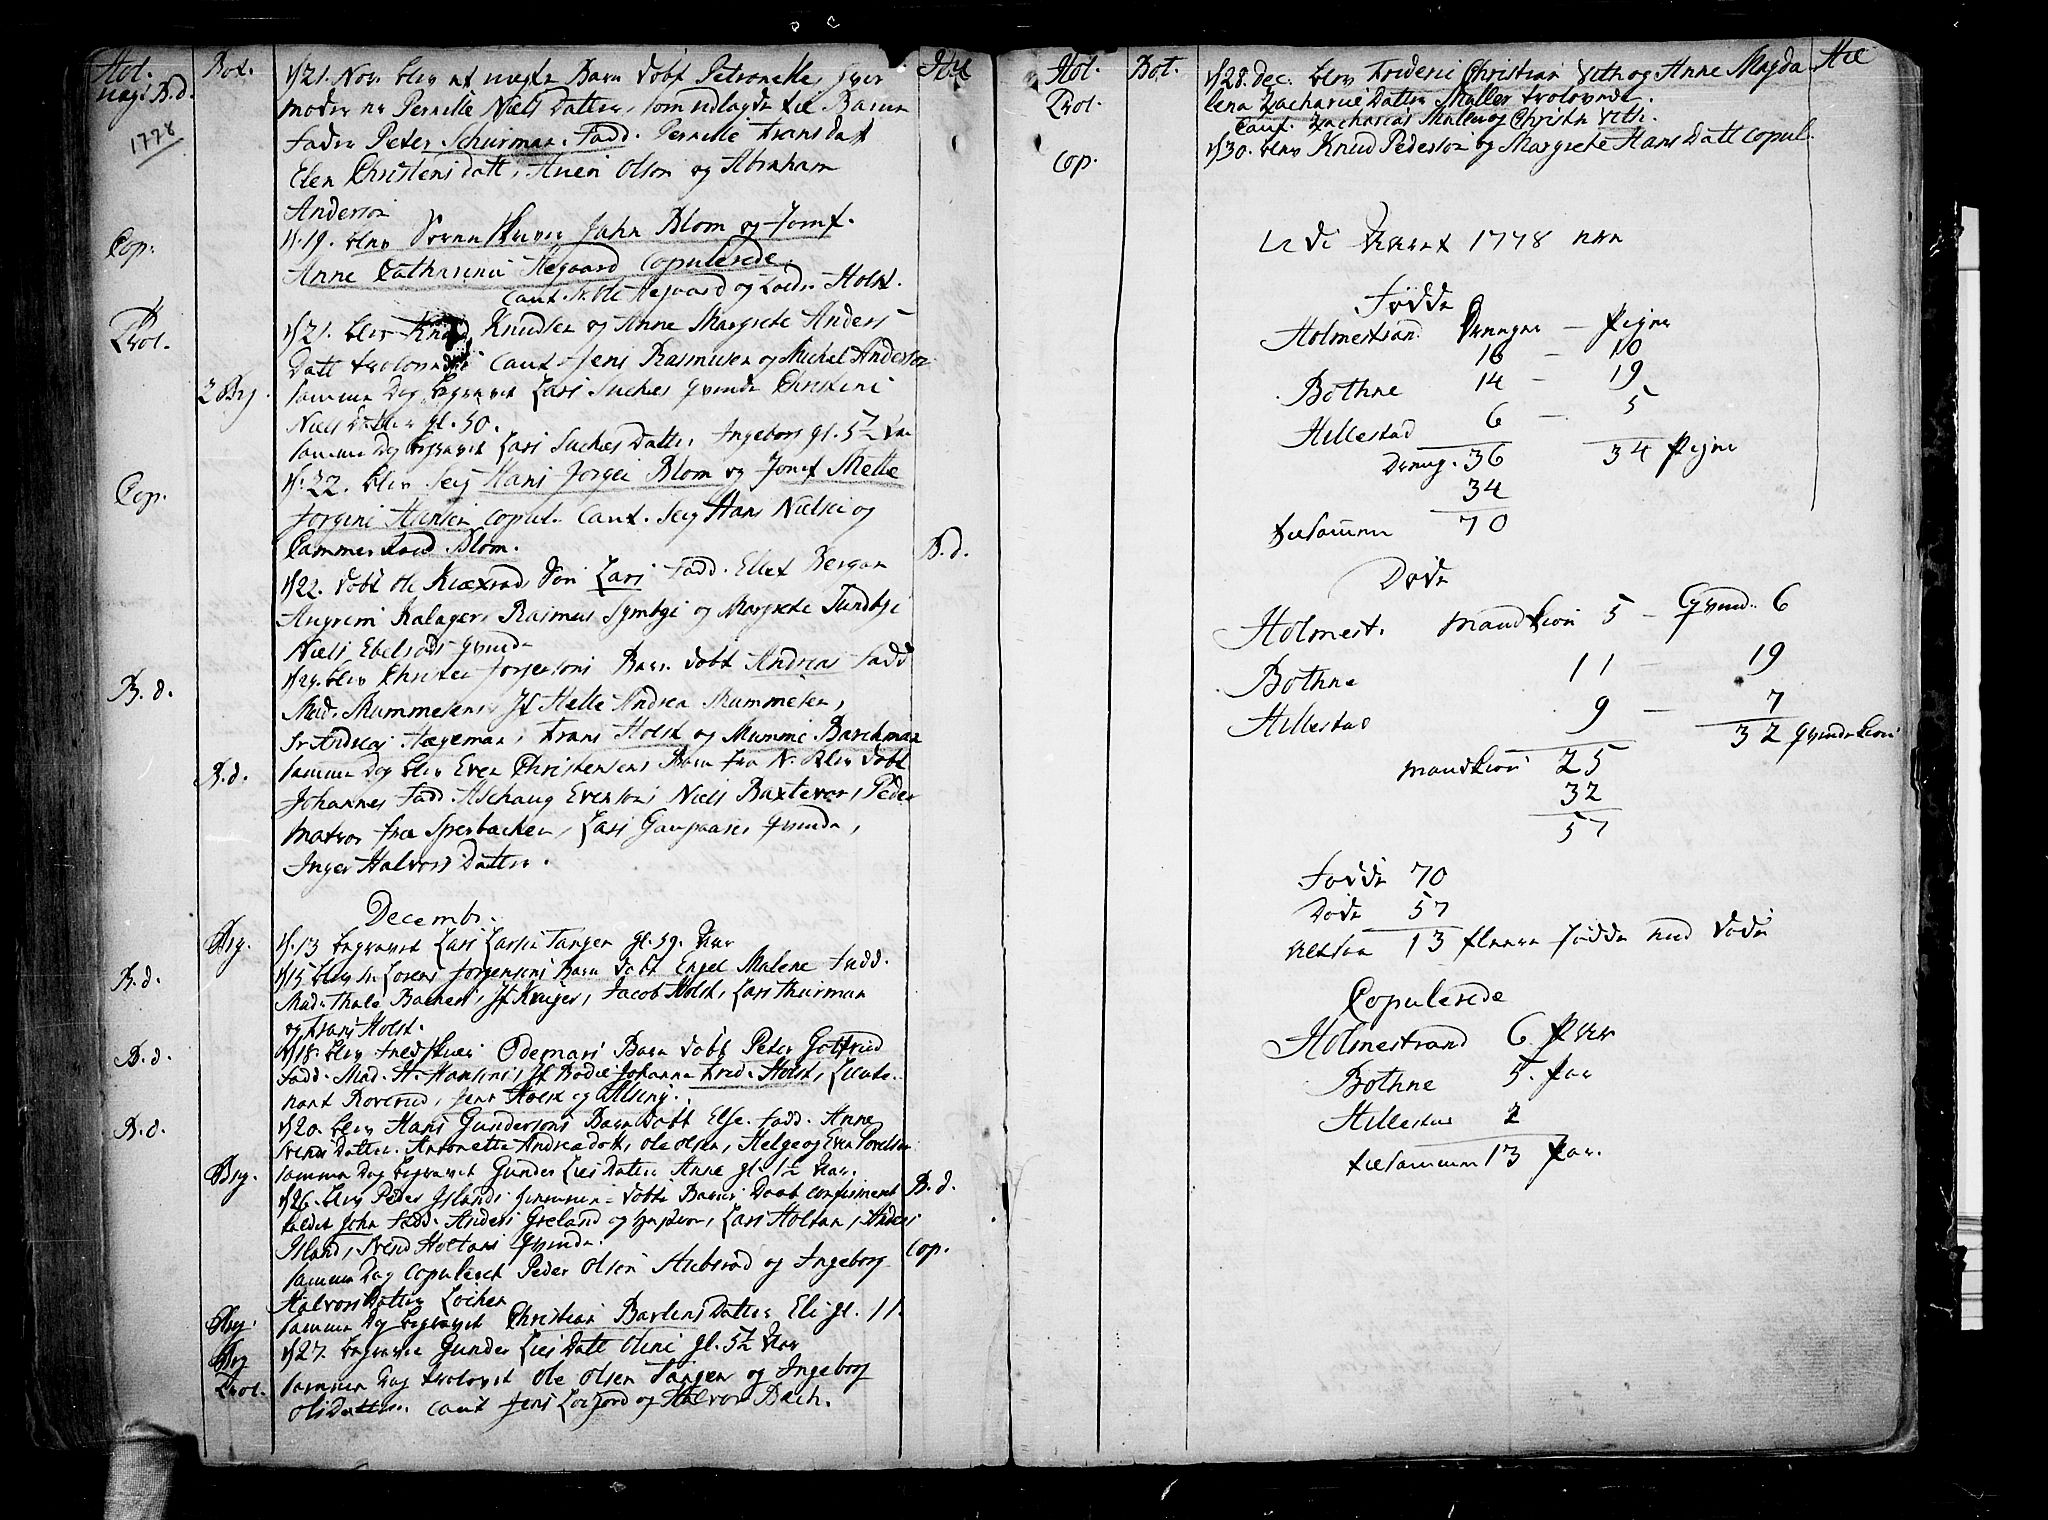 Hol.
Bot.
Hil
uegt. B.d.
1778
d/21. Nov. blev et uegte Barn döbt Petronelle, hver
moder er Pernille Niels Datter, som udlagde til Barne
fader Peter Schurman. Fadd. Pernille Fransdat
Elen Christens datt, Anen Olsen og Abraham
Andersön
Cop.
d. 19. blev Sorenskriver John Blom og Jomf.
Anne Catharina Aegaard Copulerede.
Caut. Aegaard og Holst.
Trol.
d/21. blev Knud Knudsen og Anne Margrete Anders
Datt trolovede Caut Jens Rasmusen og Michel Andersen
2 Beg.
samme Dag begravet Lars Suckes qvinde Christine
Niels Datter gl. 50.
samme Dag begravet Lars Suckes Datter Ingeborg gl. 5 1/2
Cop.
d. 22. blev Seig Hans Jörgen Blom og Jomf Mette
Jörgine Hansen copul. Caut. Seig Hans Nielsen og
Cammerraad Blom.
B.d.
d/22. döbt Ole Sön Lars Fadd. Ellef Bergan
Rasmus og Margrete
Niels qvinde
B. d.
d/29. blev Christen Jörgensens Barn döbt Andreas Fadd
Mad. Mummesens, Jf Helle Andrea Mummesen,
Sr Andreas Hegeman, Frans Holst og Mumme
B.d.
samme Dag blev Even Christensens Barn fra döbt
Johannes Fadd. Aschoug Evensöns Niels Peder
matros fra Lars qvinde,
Inger Halvors Datter.
Decemb.
Beg.
d. 13 begravet Lars Larsen Tangen gl. 59. Aar
B.d.
d/15 blev Sr. Lorens Jörgensens Barn döbt Engel Malene Fadd.
Mad. Thale Jf Kruger, Jacob Holst, Lars Thurman
og Frans Holst.
B. d.
d/18. blev Odemars Barn döbt Peter Gotfried
Fadd. Mad. H. Hansens, Jf Bodil Johanna Fred. Holst, Lieute-
nant Jens Holst og
B. d.
d/20. blev Hans Gundersens Barn Döbt Else. Fadd. Anne
Svends Datter. Antonette Andreadatt, Ole Olsen, Helge og Even
Beg.
samme Dag begravet Gunder Lies Datter Anne gl. 1 1/2 Aar.
B. d.
d/26. blev Peter Islands hjemme-döbte Barns Daab confirmeret
kaldet John Fadd. Anders Greland og hustroe, Lars Holtan, Anders
Island, Svend Holtans qvinde.
Cop.
samme Dag Copuleret Peder Olsen og Ingeborg
Halvors Datter
Beg.
samme Dag begravet Christian Datter Eli gl. 11.
Beg
d/27. begravet Gunder Lies Datt Oline gl. 5 1/2 Aar
Trol.
samme Dag trolovet Ole Olsen Tangen og Ingeborg
Ols Datter. Caut Jens og Halvor Bach.
Hol.
Bot.
Hil
Trol.
d/28. Dec. blev Frideric Christian Veth og Anne Magda
lena Zacharie Datter Möller trolovede.
Caut. Zacharias Möller og Christn Veth.
Cop.
d/30. blev Knud Pedersön og Margrete Hans Datt Copul.
Udi Aaret 1778 ere
Födde
Holmestrand Drenge — Piger
16 — 10
Bothne 14 — 19
Hillestad 6 — 5
Dreng. 36 34 Piger
34
tilsamen 70
Döde
Holmest. mandkiön 5 — Qvind. 6
Bothne 11 — 19
Hillestad 9 — 7
32 qvindekiön
mandkiön 25
32
57
Födde 70
Döde 57
altsaa 13 fleere födde end döde
Copulerede
Holmestrand 6. Par
Bothne 5. Par
Hillestad 2
tilsammen 13 Par.